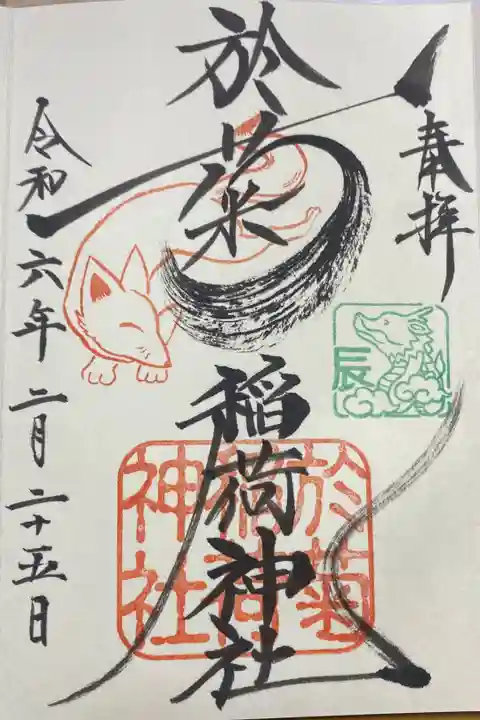 奉拝
辰
於菊
稲荷神社
於菊
稲荷
神社
令和六年二月二十五日